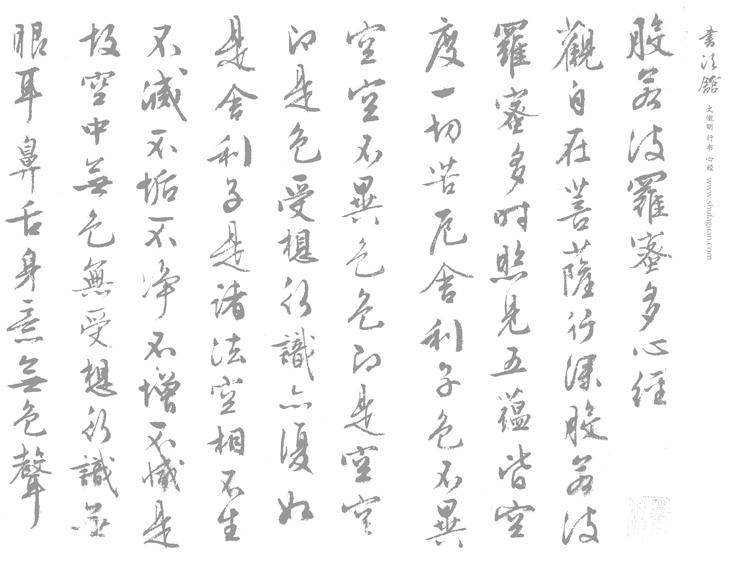 書法館
文徵明 行书 心经 www.shufaguan.com
般若波羅蜜多心經
觀自在菩薩行深般若波
羅蜜多时照見五蘊皆空
度一切苦厄舍利子色不異
空空不異色色即是空空
即是色受想行識亦復如
是舍利子是諸法空相不生
不滅不垢不淨不增不減是
故空中無色無受想行識無
眼耳鼻舌身意無色聲